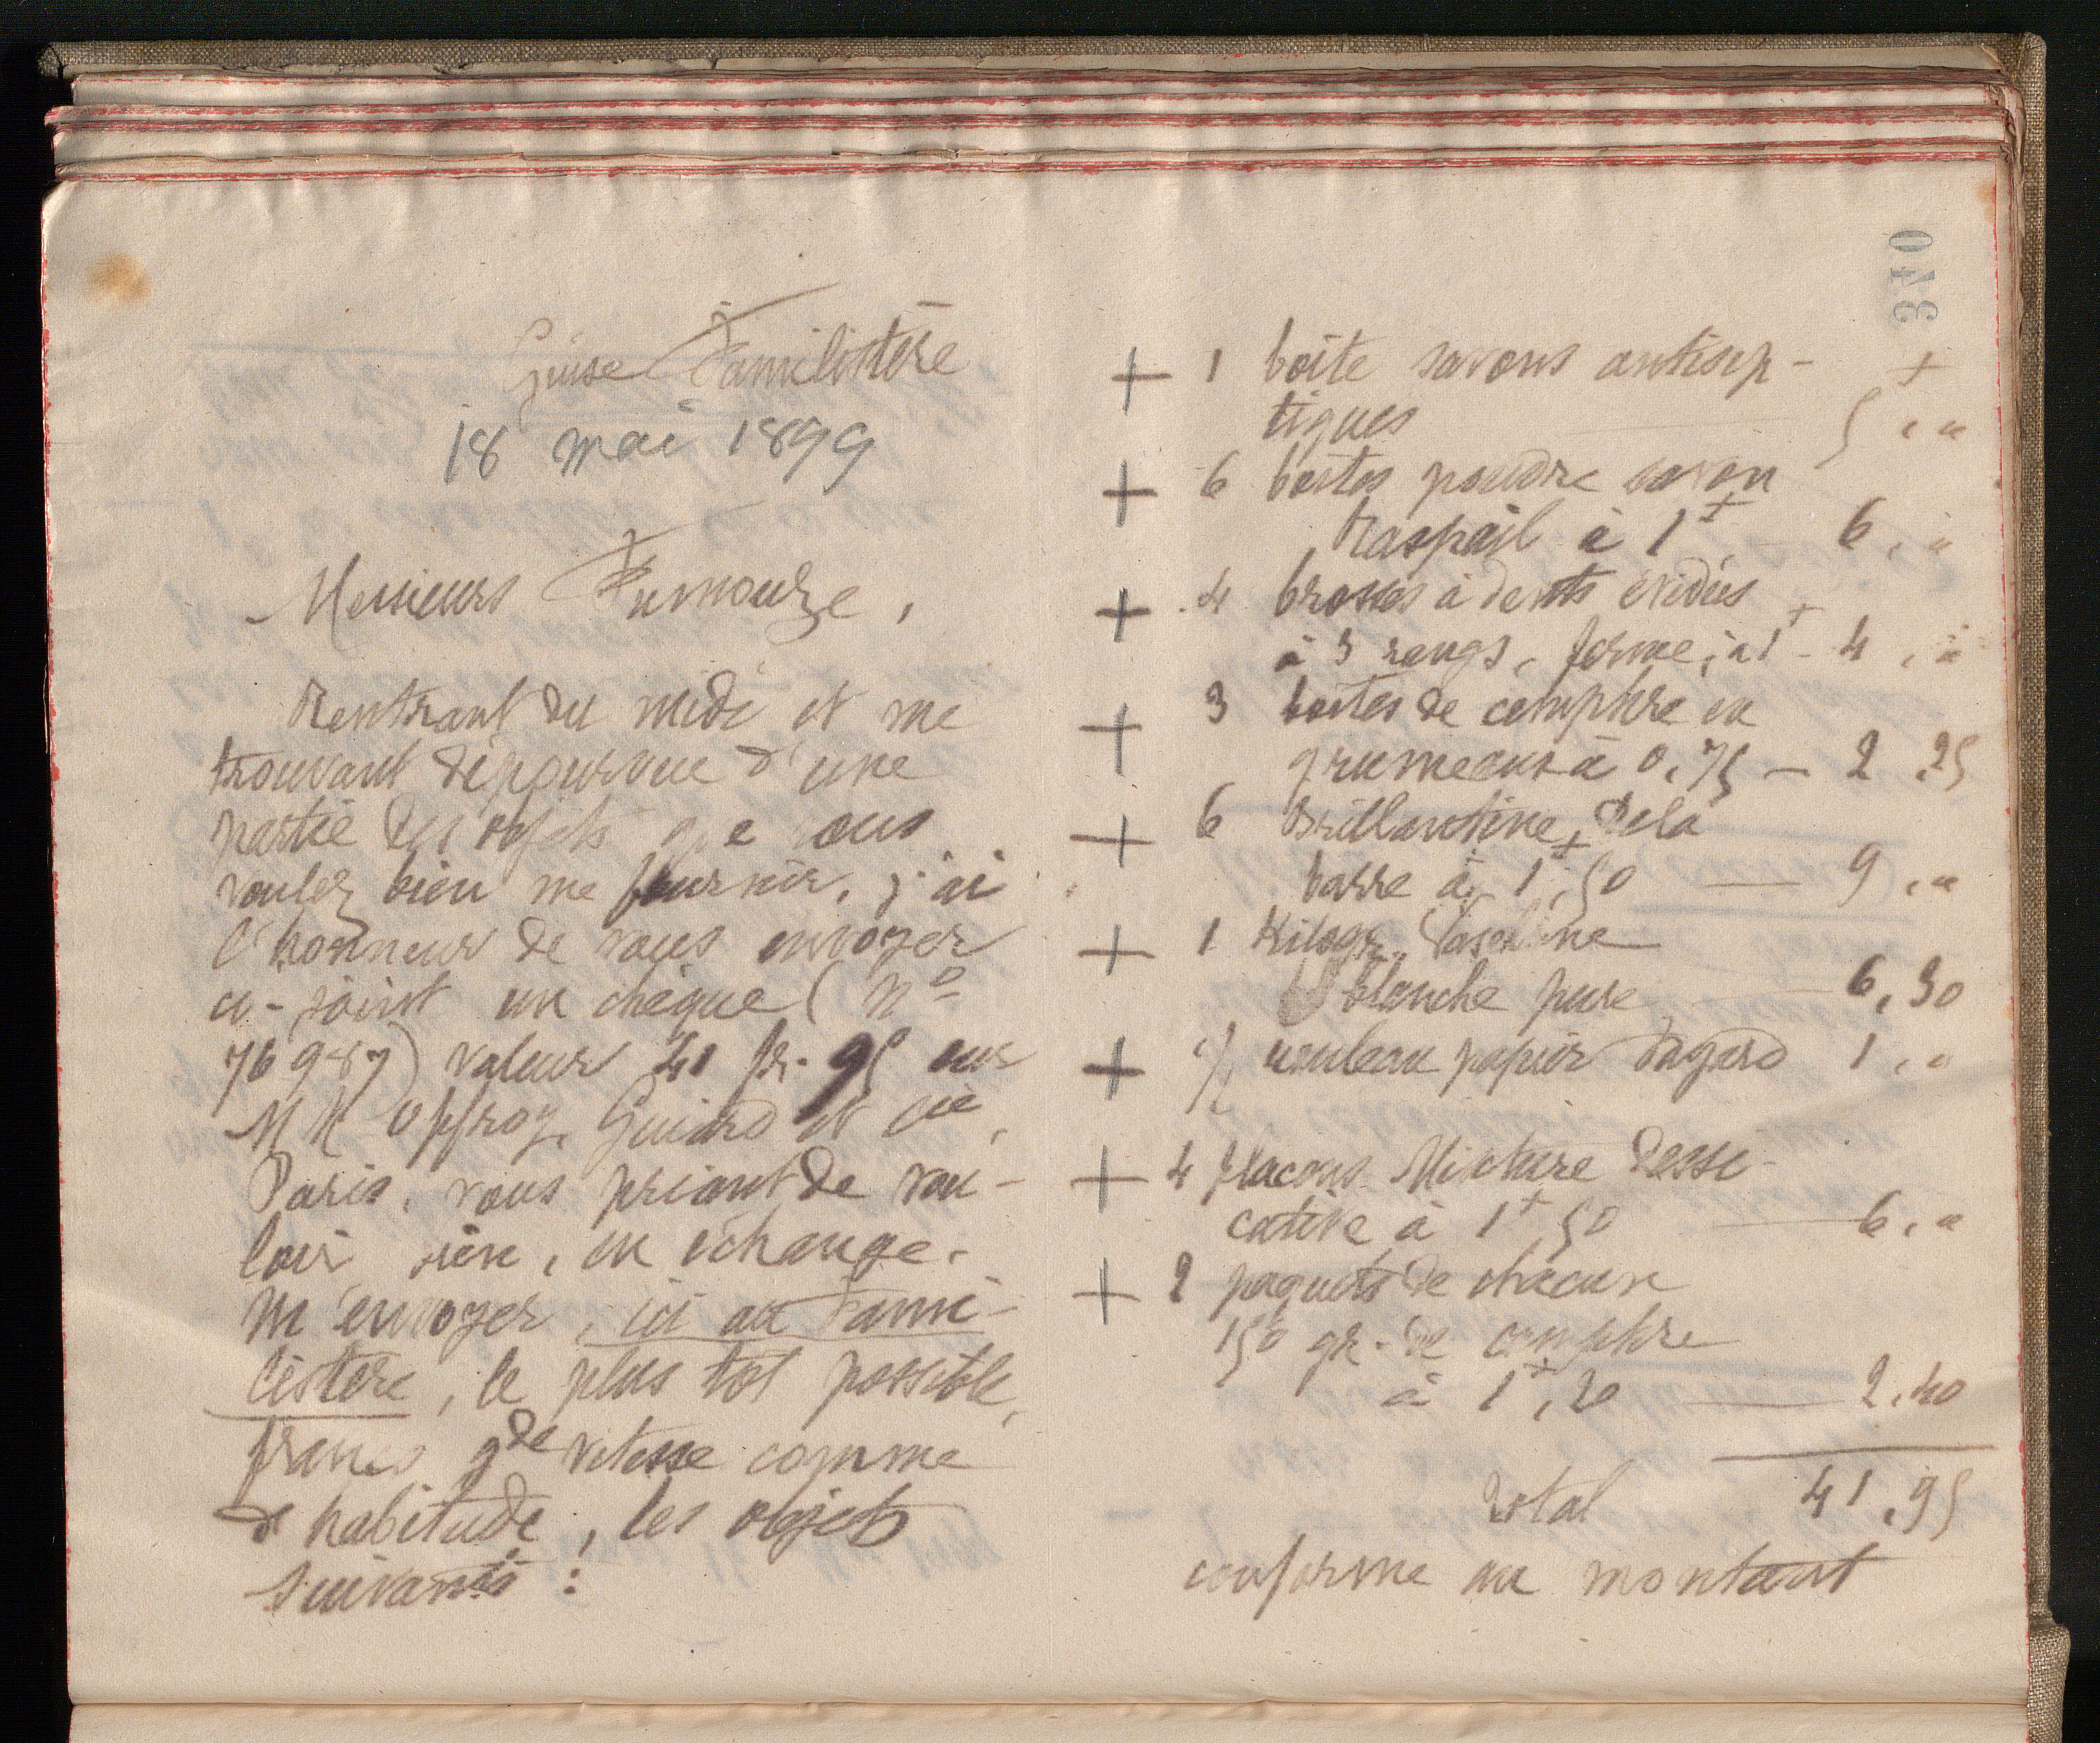 Guise Familistère
18 mai 1899
Messieurs Fumouze,
Rentrant du midi et me
trouvant dépourvue d'une
partie des objets que vous
voulez bien me fournir, j'ai
l'honneur de vous envoyer
ci-joint un chèque (No
76987) valeur 41 fr. 95 sur
MM Offroy, Guiard et Cie,
Paris, vous priant de vou-
loir bien, en échange,
m'envoyer, ici au Fami-
listère, le plus tôt possible,
franco gde vitesse comme
d'habitude, les objets
suivants :
340
+ 1 boîte savons antisep-
tiques 5 f, "
+ 6 boîtes poudre savon
Raspail à 1f - 6, "
+ 4 brosses à dents évidées
à 3 rangs, ferme, à 1f - 4, "
+ 3 boîtes de camphre en
grumeaux à 0,75 - 2,25
+ 6 Brillantine Dela
barre à 1f,50 — 9, "
+ 1 Kilogr. Vaseline
blanche pure — 6,30
+ 1/ rouleau papier Fayard 1, "
+ 4 flacons Mixture dessi-
cative à 1f,50 — 6, "
+ 2 paquets de chacun
150 gr. de camphre
à 1f,20 — 2,40
Total 41,95
conforme au montant